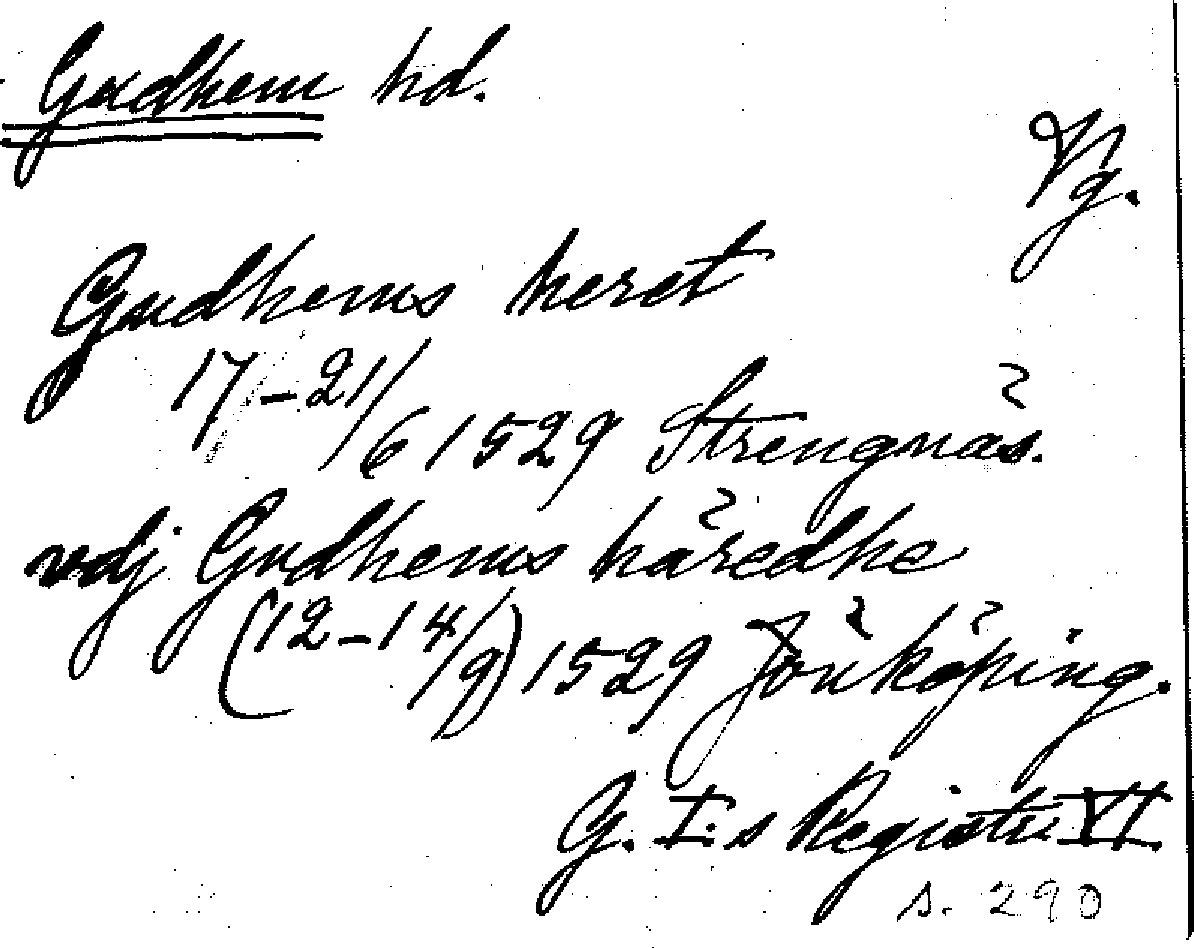 Gudhem hd.
Vg.
Gudhems heret
17–21/6 1529 Strengnäs.
vdj Gvdhems häredhe
(12–14/9) 1529 Jönköping.
G. I:s Registr. VI.
s. 290